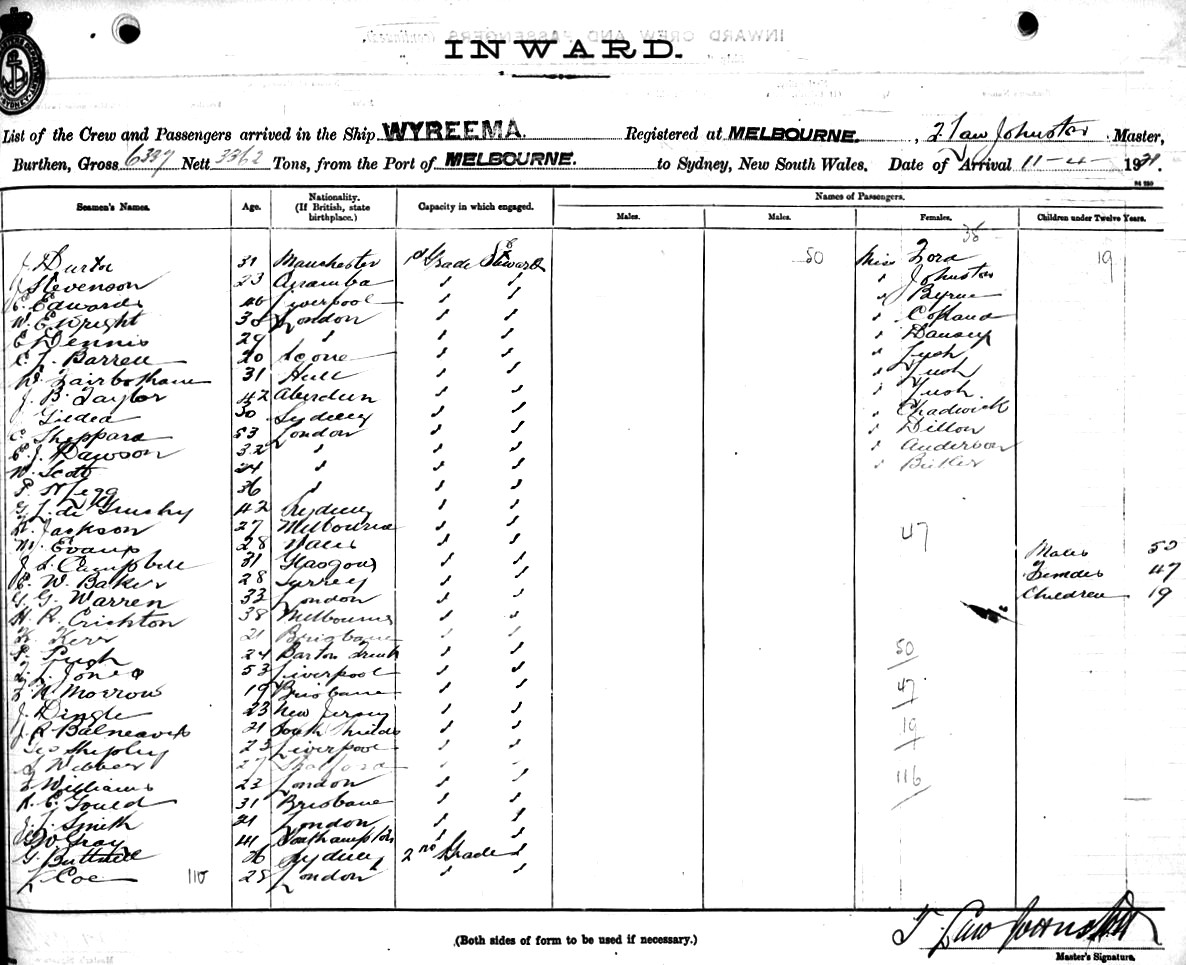 INWARD.
List of the Crew and Passengers arrived in the Ship WYREEMA. Registered at MELBOURNE. , Law Johnston Master,
Burthen, Gross 6337 Nett 3362 Tons, from the Port of MELBOURNE. to Sydney, New South Wales. Date of Arrival 11-4-1921.
Names of Passengers.
Seamen's Names. Age. Nationality. (If British, state birthplace.) Capacity in which engaged. Males. Males. Females. Children under Twelve Years.
38
J 31 Manchester 1st Grade Steward 50 Miss Ford 19
J Stevenson 23 Arramba " " " Johnston
E. Edwards 40 Liverpool " " " Byrne
W. E. Wright 38 London " " " Copland
E Dennis 29 " " " " Dansey
C. J. Barrett 20 Scone " " " Tush
W. Fairbotham 31 Hull " " " Tush
J. B. Taylor 42 Aberdeen " " " Tush.
J Gildea 30 Sydney " " " Chadwick
C. Sheppard 53 London " " " Dillon
J. Dawson 32 " " " " Anderson
W. Scott 24 " " " " Butler
Legg 36 " " "
42 Sydney " "
Jackson 27 Melbourne " " 47
W. Evans 28 Wales " " Males 50
J. L. Campbell 31 Glasgow " " Females 47
E. W. Baker 28 Surrey " " Children 19
G. G. Warren 33 London " "
H. R. Crichton 38 Melbourne " "
Kerr 21 Brisbane " "
Pugh 24 Barton " " 50
Jones 53 Liverpool " "
Morrow 19 Brisbane " " 47
J. Dingle 23 New Jersey " "
J. R Balneaves 21 South Shields " " 19
Geo Shipley 23 Liverpool " "
Webber 27 " " 116
Williams 23 London " "
R. E. Gould 31 Brisbane " "
J. J. Smith 21 London " "
Gray 41 Southampton " "
G. 26 Sydney 2nd Grade "
Coe 110 25 London " "
T. Law Johnston
(Both sides of form to be used if necessary.)
Master's Signature.